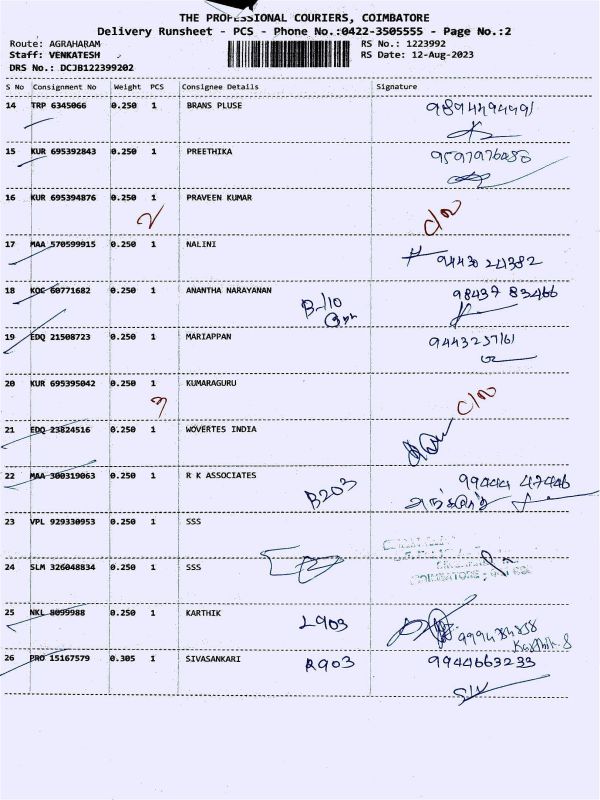 THE PROFESSIONAL COURIERS, COIMBATORE
Delivery Runsheet - PCS - Phone No.:0422-3505555 - Page No.:2
Route: AGRAHARAM RS No.: 1223992
Staff: VENKATESH RS Date: 12-Aug-2023
DRS No.: DCJB122399202
S No Consignment No Weight PCS Consignee Details Signature
14 TRP 6345066 0.250 1 BRANS PLUSE
15 KUR 695392843 0.250 1 PREETHIKA
16 KUR 695394876 0.250 1 PRAVEEN KUMAR
2
17 MAA 570599915 0.250 1 NALINI
94430 24382
18 KOC 60771682 0.250 1 ANANTHA NARAYANAN
B-110 98437 83466
19 EDQ 21508723 0.250 1 MARIAPPAN
9443237161
20 KUR 695395042 0.250 1 KUMARAGURU
3
21 EDQ 23824516 0.250 1 WOVERTES INDIA
22 MAA 300319063 0.250 1 R K ASSOCIATES
B203 99444 47446
23 VPL 929330953 0.250 1 SSS
24 SLM 326048834 0.250 1 SSS
COIMBATORE
25 NKL 8099988 0.250 1 KARTHIK
L903
Karthik.S
26 PRO 15167579 0.305 1 SIVASANKARI
A903 9944663233